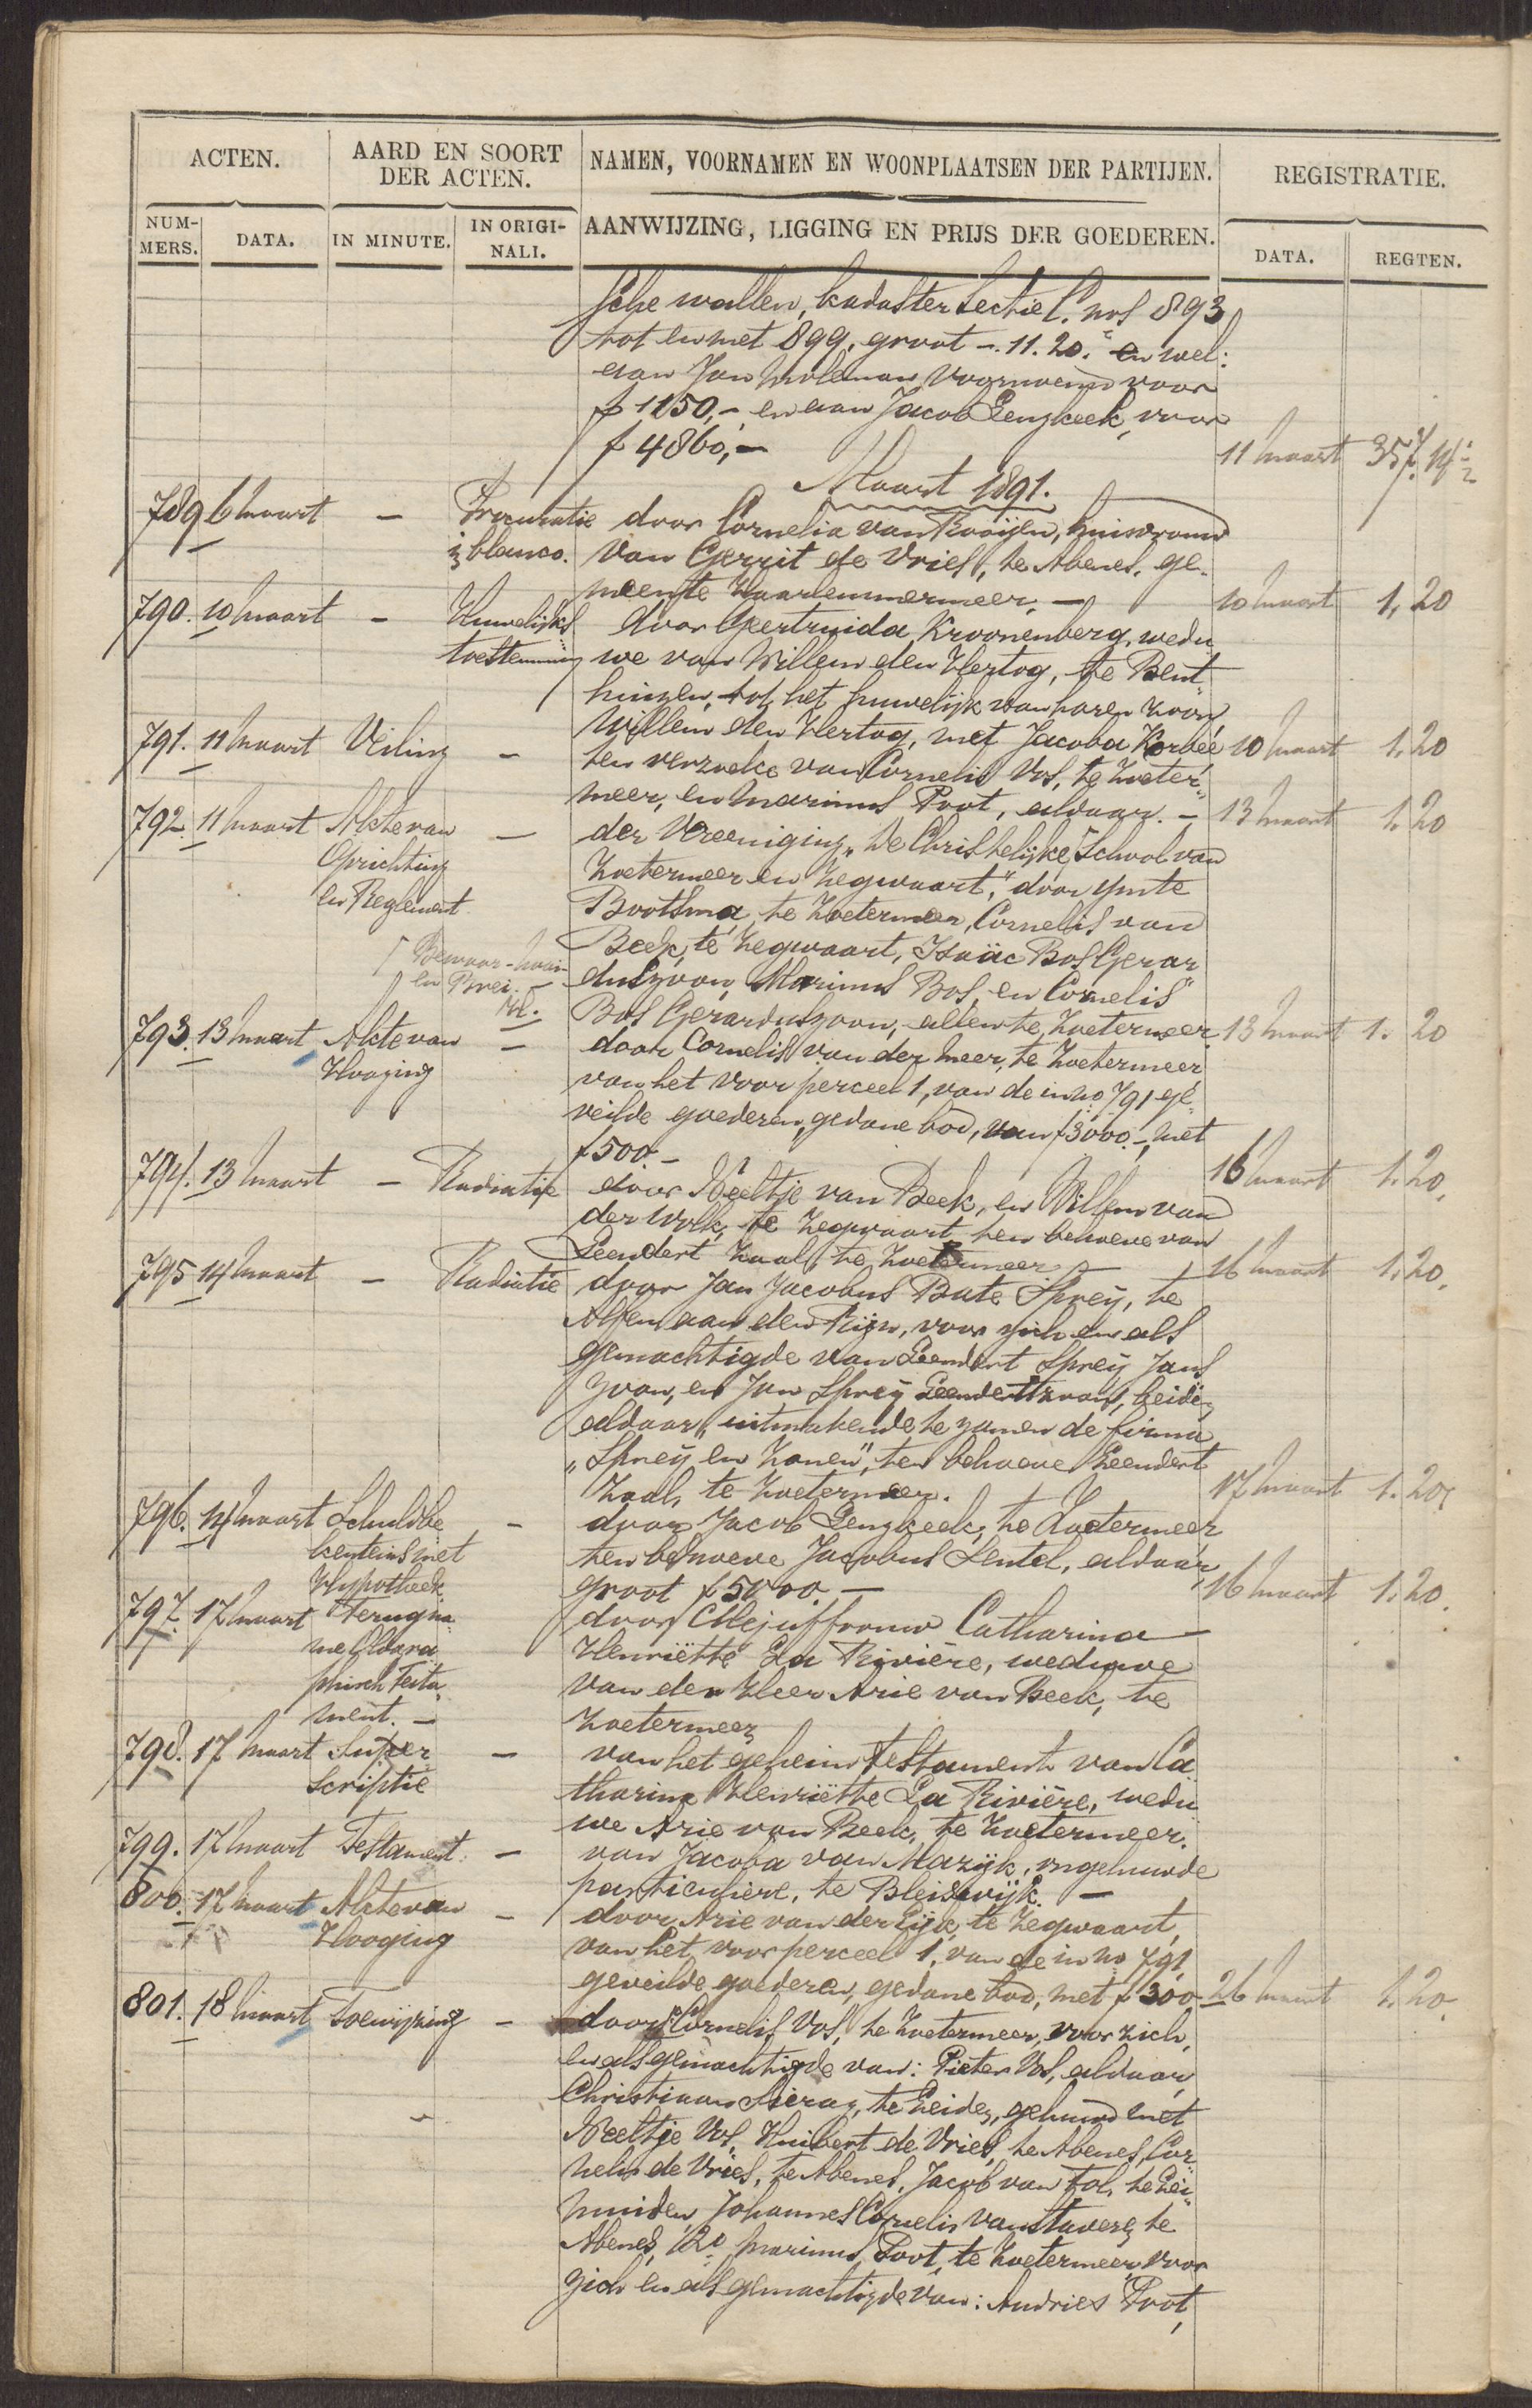 ACTEN.
AARD EN SOORT
DER ACTEN.
NAMEN, VOORNAMEN EN WOONPLAATSEN DER PARTIJEN.
REGISTRATIE.
NUM-
MERS.
DATA.
IN MINUTE.
IN ORIGI-
NALI.
AANWIJZING, LIGGING EN PRIJS DER GOEDEREN.
DATA.
REGTEN.
sche wallen, kadaster Sectie C. nos 893
tot en met 899, groot -. 11. 20. en wel:
aan Jan Moleman voornoemd voor
f 1150,- en aan Jacob Lengkeek, voor
f 4860,- 11 Maart 357.14
Maart 1891.
789 6 Maart - Procuratie door Cornelia van Rooijen, huisvrouw
in blanco. van Gerrit de Vries, te Abenes, ge-
meente Haarlemmermeer. - 10 Maart 1,20
790. 10 Maart - Huwelijks door Geertruida Kroonenberg, wedu-
toestemming we van Willem den Hertog, te Bent-
huizen, tot het huwelijk van haren zoon
Willem den Hertog, met Jacoba Korbée 10 Maart 1.20
791. 11 Maart Veiling - ten verzoeke van Cornelis Vos, te Zoeter-
meer, en Marinus Poot, aldaar. - 13 Maart 1.20
792 11 Maart Akte van - der Vereeniging "De Christelijke School van
Oprichting Zoetermeer en Zegwaart," door Ymte
en Reglement. Bootsma, te Zoetermeer, Cornelis van
Bewaar- Beek, te Zegwaart, Isaäc Bos Gerar-
en Brei- duszoon, Marinus Bos, en Cornelis
Bos Gerarduszoon, allen te Zoetermeer 13 Maart 1.20
793. 13 Maart Akte van - door Cornelis van der Meer, te Zoetermeer
Hooging van het voor perceel 1, van de in no 791 ge-
veilde goederen, gedane bod, van f 3000.-, met
f 500.- 16 Maart 1.20.
794. 13 Maart - Radiatie door Neeltje van Beek, en Willem van
der Wolk, te Zegwaart, ten behoeve van
Leendert Zaal, te Zoetermeer. - 16 Maart 1.20.
795 14 Maart - Radiatie door Jan Jacobus Bute Spreij, te
Alfen aan den Rijn, voor zich en als
gemachtigde van Leendert Spreij Jans
zoon, en Jan Spreij Leendertszoon, beide
aldaar, uitmakende te zamen de firma
"Spreij en Zonen", ten behoeve Leendert
Zaal, te Zoetermeer. 17 Maart 1.20.
796. 14 Maart Schuldbe- - door Jacob Lengkeek, te Zoetermeer
kentenis met ten behoeve Jacobus Sentel, aldaar,
Hypotheek groot f 5000.- 16 Maart 1.20.
797. 17 Maart Terugna- door Mejuffrouw Catharina
me Ologra- Henriëtte La Rivière, weduwe
phisch Testa- van den Heer Arie van Beek, te
ment. - Zoetermeer
798. 17 Maart Super - van het geheim testament van Ca
scriptie tharina Henriëtte La Rivière, wedu
we Arie van Beek, te Zoetermeer.
799. 17 Maart Testament. - van Jacoba van Mazijk, ongehuwde
particuliere, te Bleiswijk. -
800. 17 Maart Akte van - door Arie van der Eijk, te Zegwaart,
Hooging van het voor perceel 1, van de in no 791
geveilde goederen, gedane bod, met f 300.- 26 Maart 1.20.
801. 18 Maart Toewijzing - door Cornelis Vos, te Zoetermeer, voor zich,
en als gemachtigde van: Pieter Vos, aldaar,
Christiaan Sierag, te Leiden, gehuwd met
Neeltje Vos, Huibert de Vries, te Abenes, Cor-
nelis de Vries, te Abenes, Jacob van Tol, te Lei-
muiden, Johannes Cornelis van Staveren te
Abenes, 2o Marinus Poot, te Zoetermeer, voor
zich en als gemachtigde van: Andries Poot,